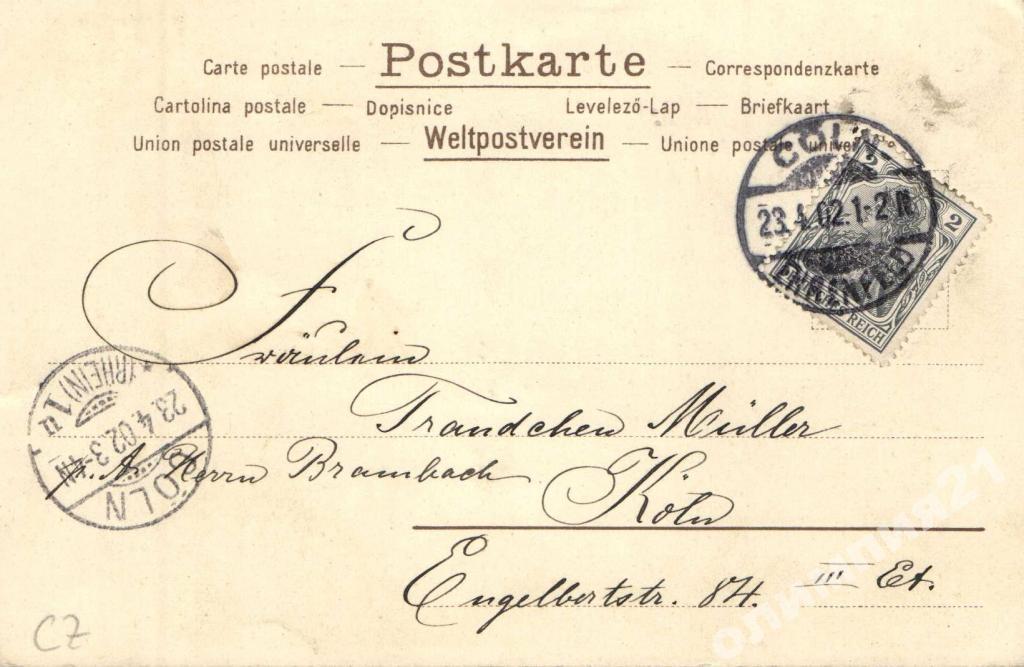 Carte postale — Postkarte — Correspondenzkarte
Cartolina postale — Dopisnice Levelező-Lap — Briefkaart
Union postale universelle — Weltpostverein — Unione postale univer
CÖLN
23.4.02.1-2N.
EHRENFELD
2 2
DEUTSCHES REICH
Fräulein
Traudchen Müller
p. A. Herrn Brambach
Köln
Engelbertstr. 84. III Et.
CÖLN
23.4.02.3-4N
(RHEIN) 1 u
CZ
олимпия21